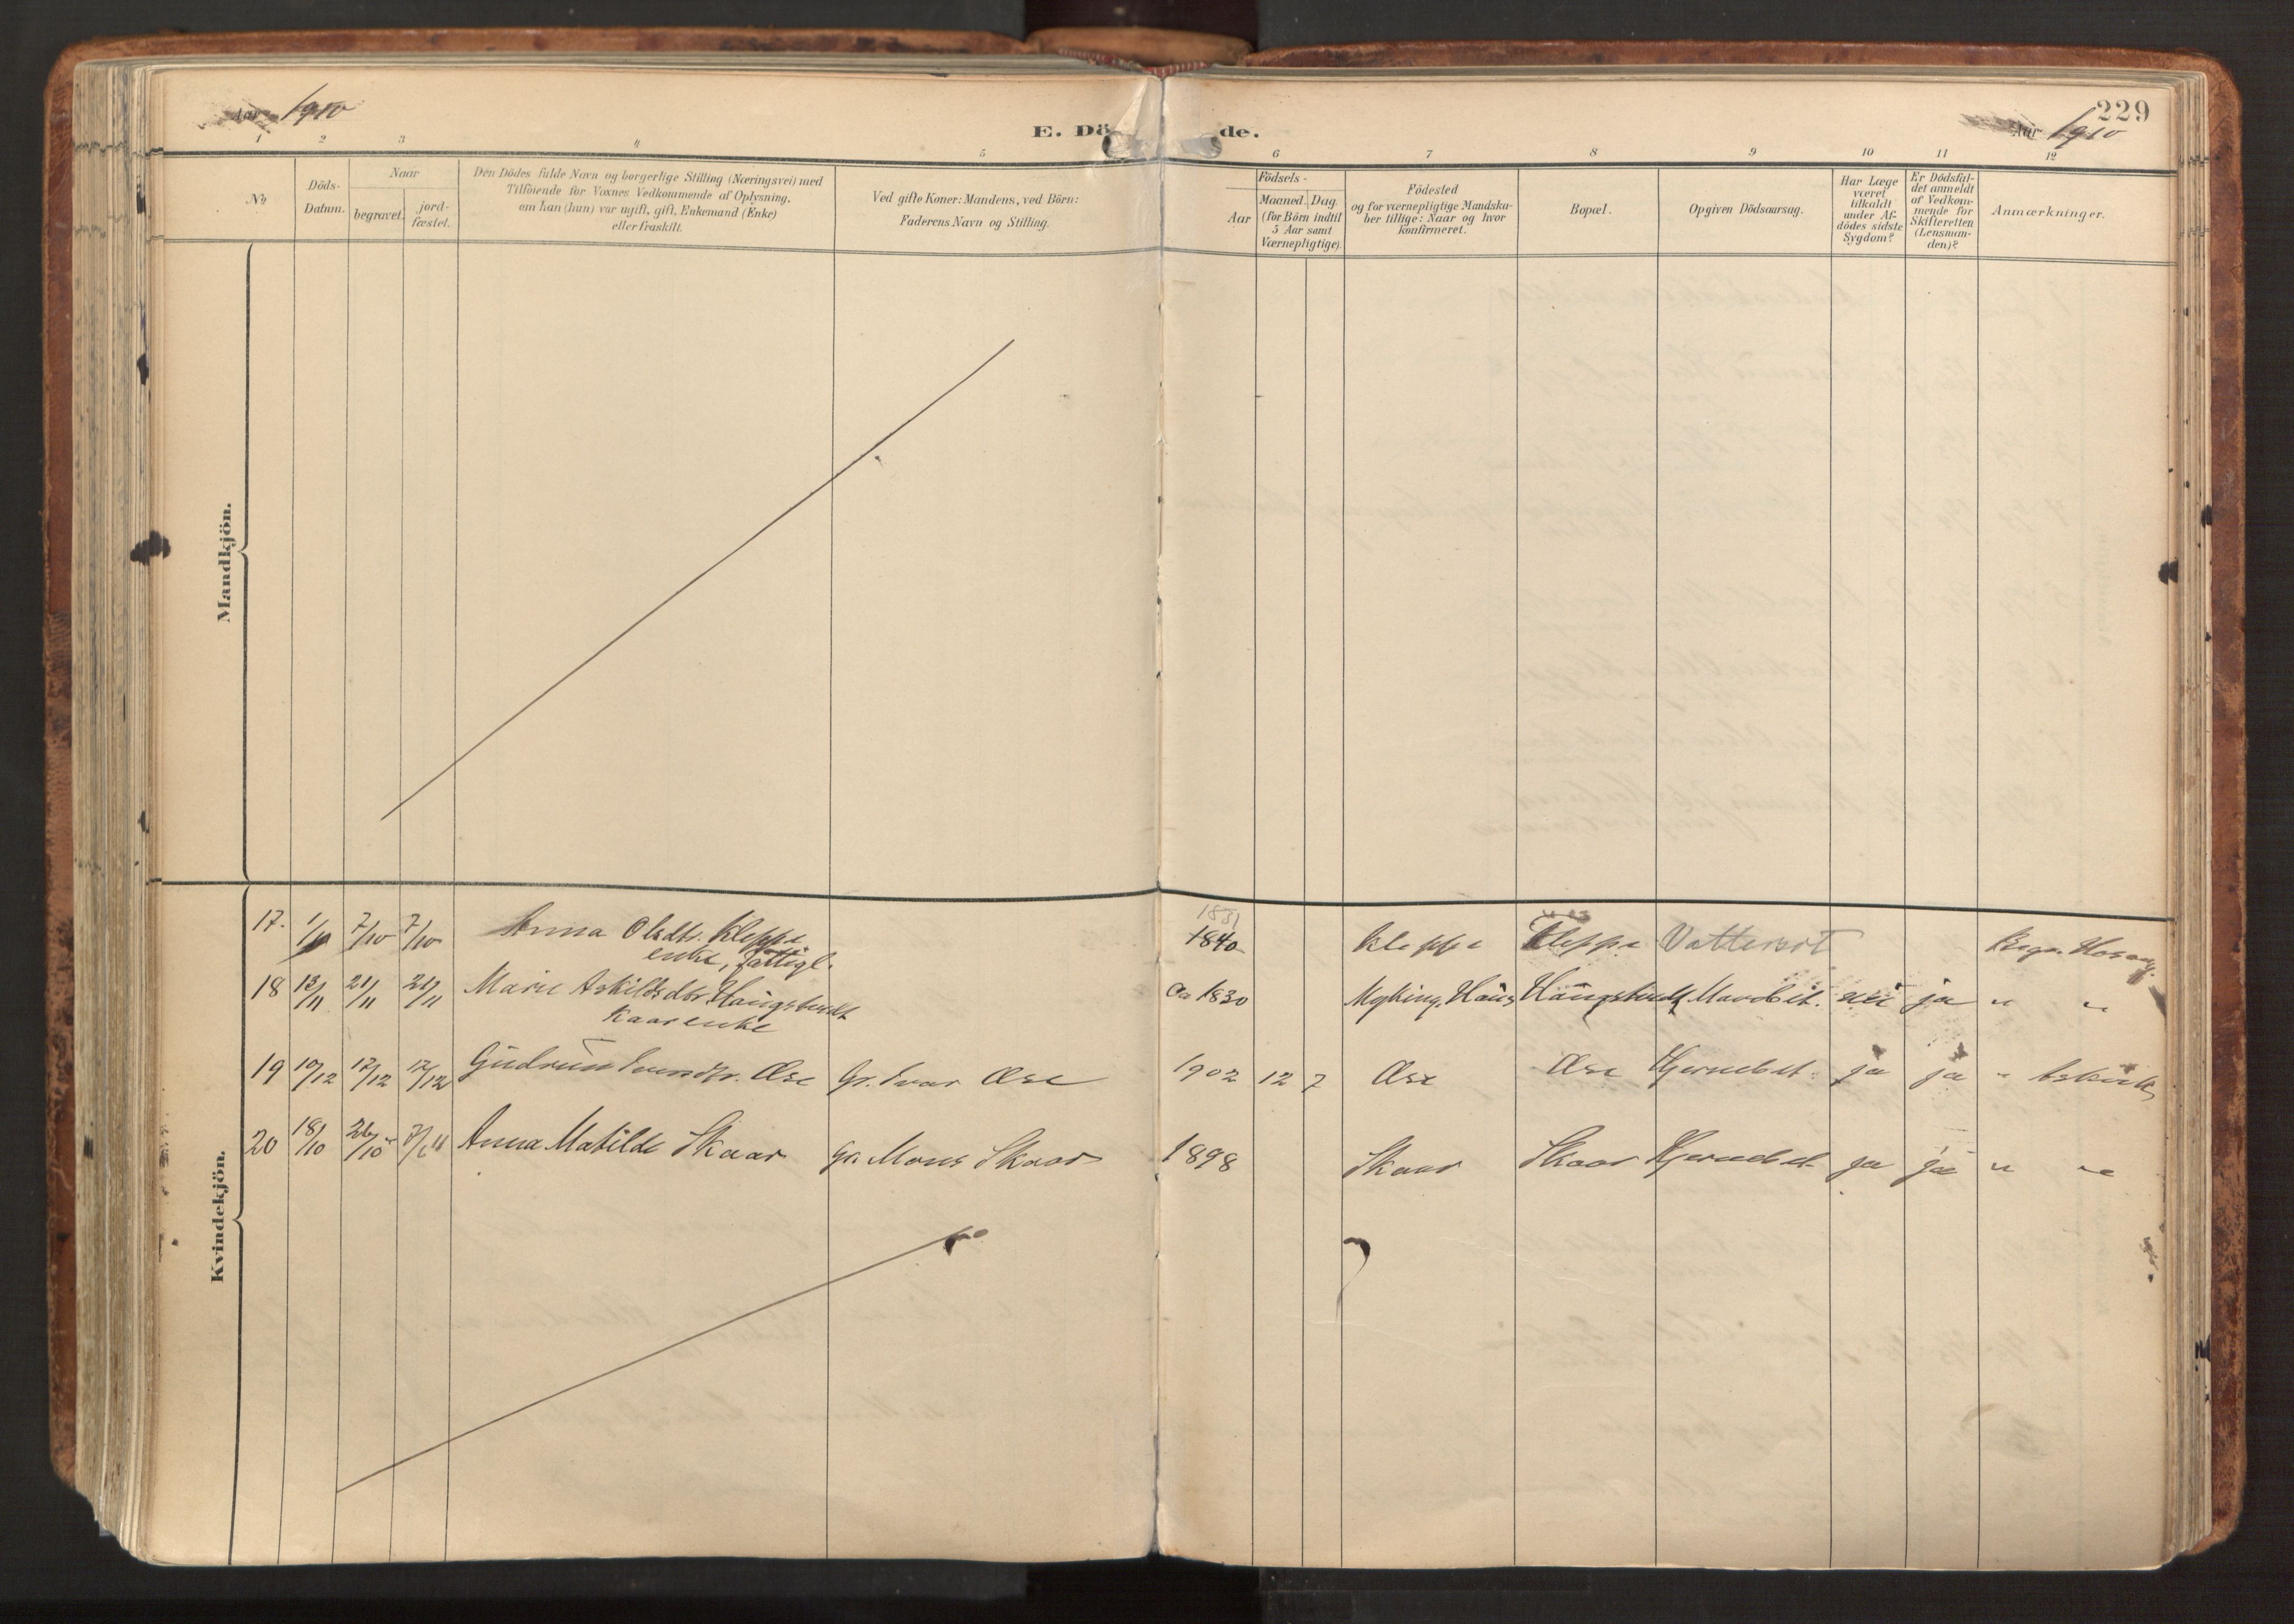 Aar 1910
E. Dö de.
229
Aar 1910
1 2 3 4 5 6 7 8 9 10 11 12
No
Döds-
Datum.
Naar
begravet.
jord-
fæstet.
Den Dödes fulde Navn og borgerlige Stilling (Næringsvei) med
Tilföiende for Voxnes Vedkommende af Oplysning,
om han (hun) var ugift, gift, Enkemand (Enke)
eller fraskilt.
Ved gifte Koner: Mandens, ved Börn:
Faderens Navn og Stilling.
Födsels-
Aar
Maaned. Dag.
(for Börn indtil
5 Aar samt
Værnepligtige).
Födested
og for værnepligtige Mandska-
ber tillige: Naar og hvor
konfirmeret.
Bopæl.
Opgiven Dödsaarsag.
Har Læge
været
tilkaldt
under Af-
dödes sidste
Sygdom?
Er Dödsfal-
det anmeldt
af Vedkom-
mende for
Skifteretten
(Lensman-
den)?
Anmærkninger.
Mandkjön.
Kvindekjön.
1831
17. 1/10 7/10 7/10 Anna Olsdtr. Kleppe 1840 Kleppe Kleppe Vattersot Begr. Hosang.
enke, fattigl.
18 13/11 21/11 21/11 Marie Askildsdtr. Haugstvedt Ca 1830 Myking, Haus Haugstvedt nei ja " "
Kaarenke
19 10/12 17/12 17/12 Gudrun Ivarsdtr. Æse Gr. Ivar Æse 1902 12 7 Æse Æse Hjernebet. ja ja "
20 18/10 26/10 Anna Matilde Skaar Gr. Mons Skaar 1898 Skaar Skaar Hjernebet. ja ja " "